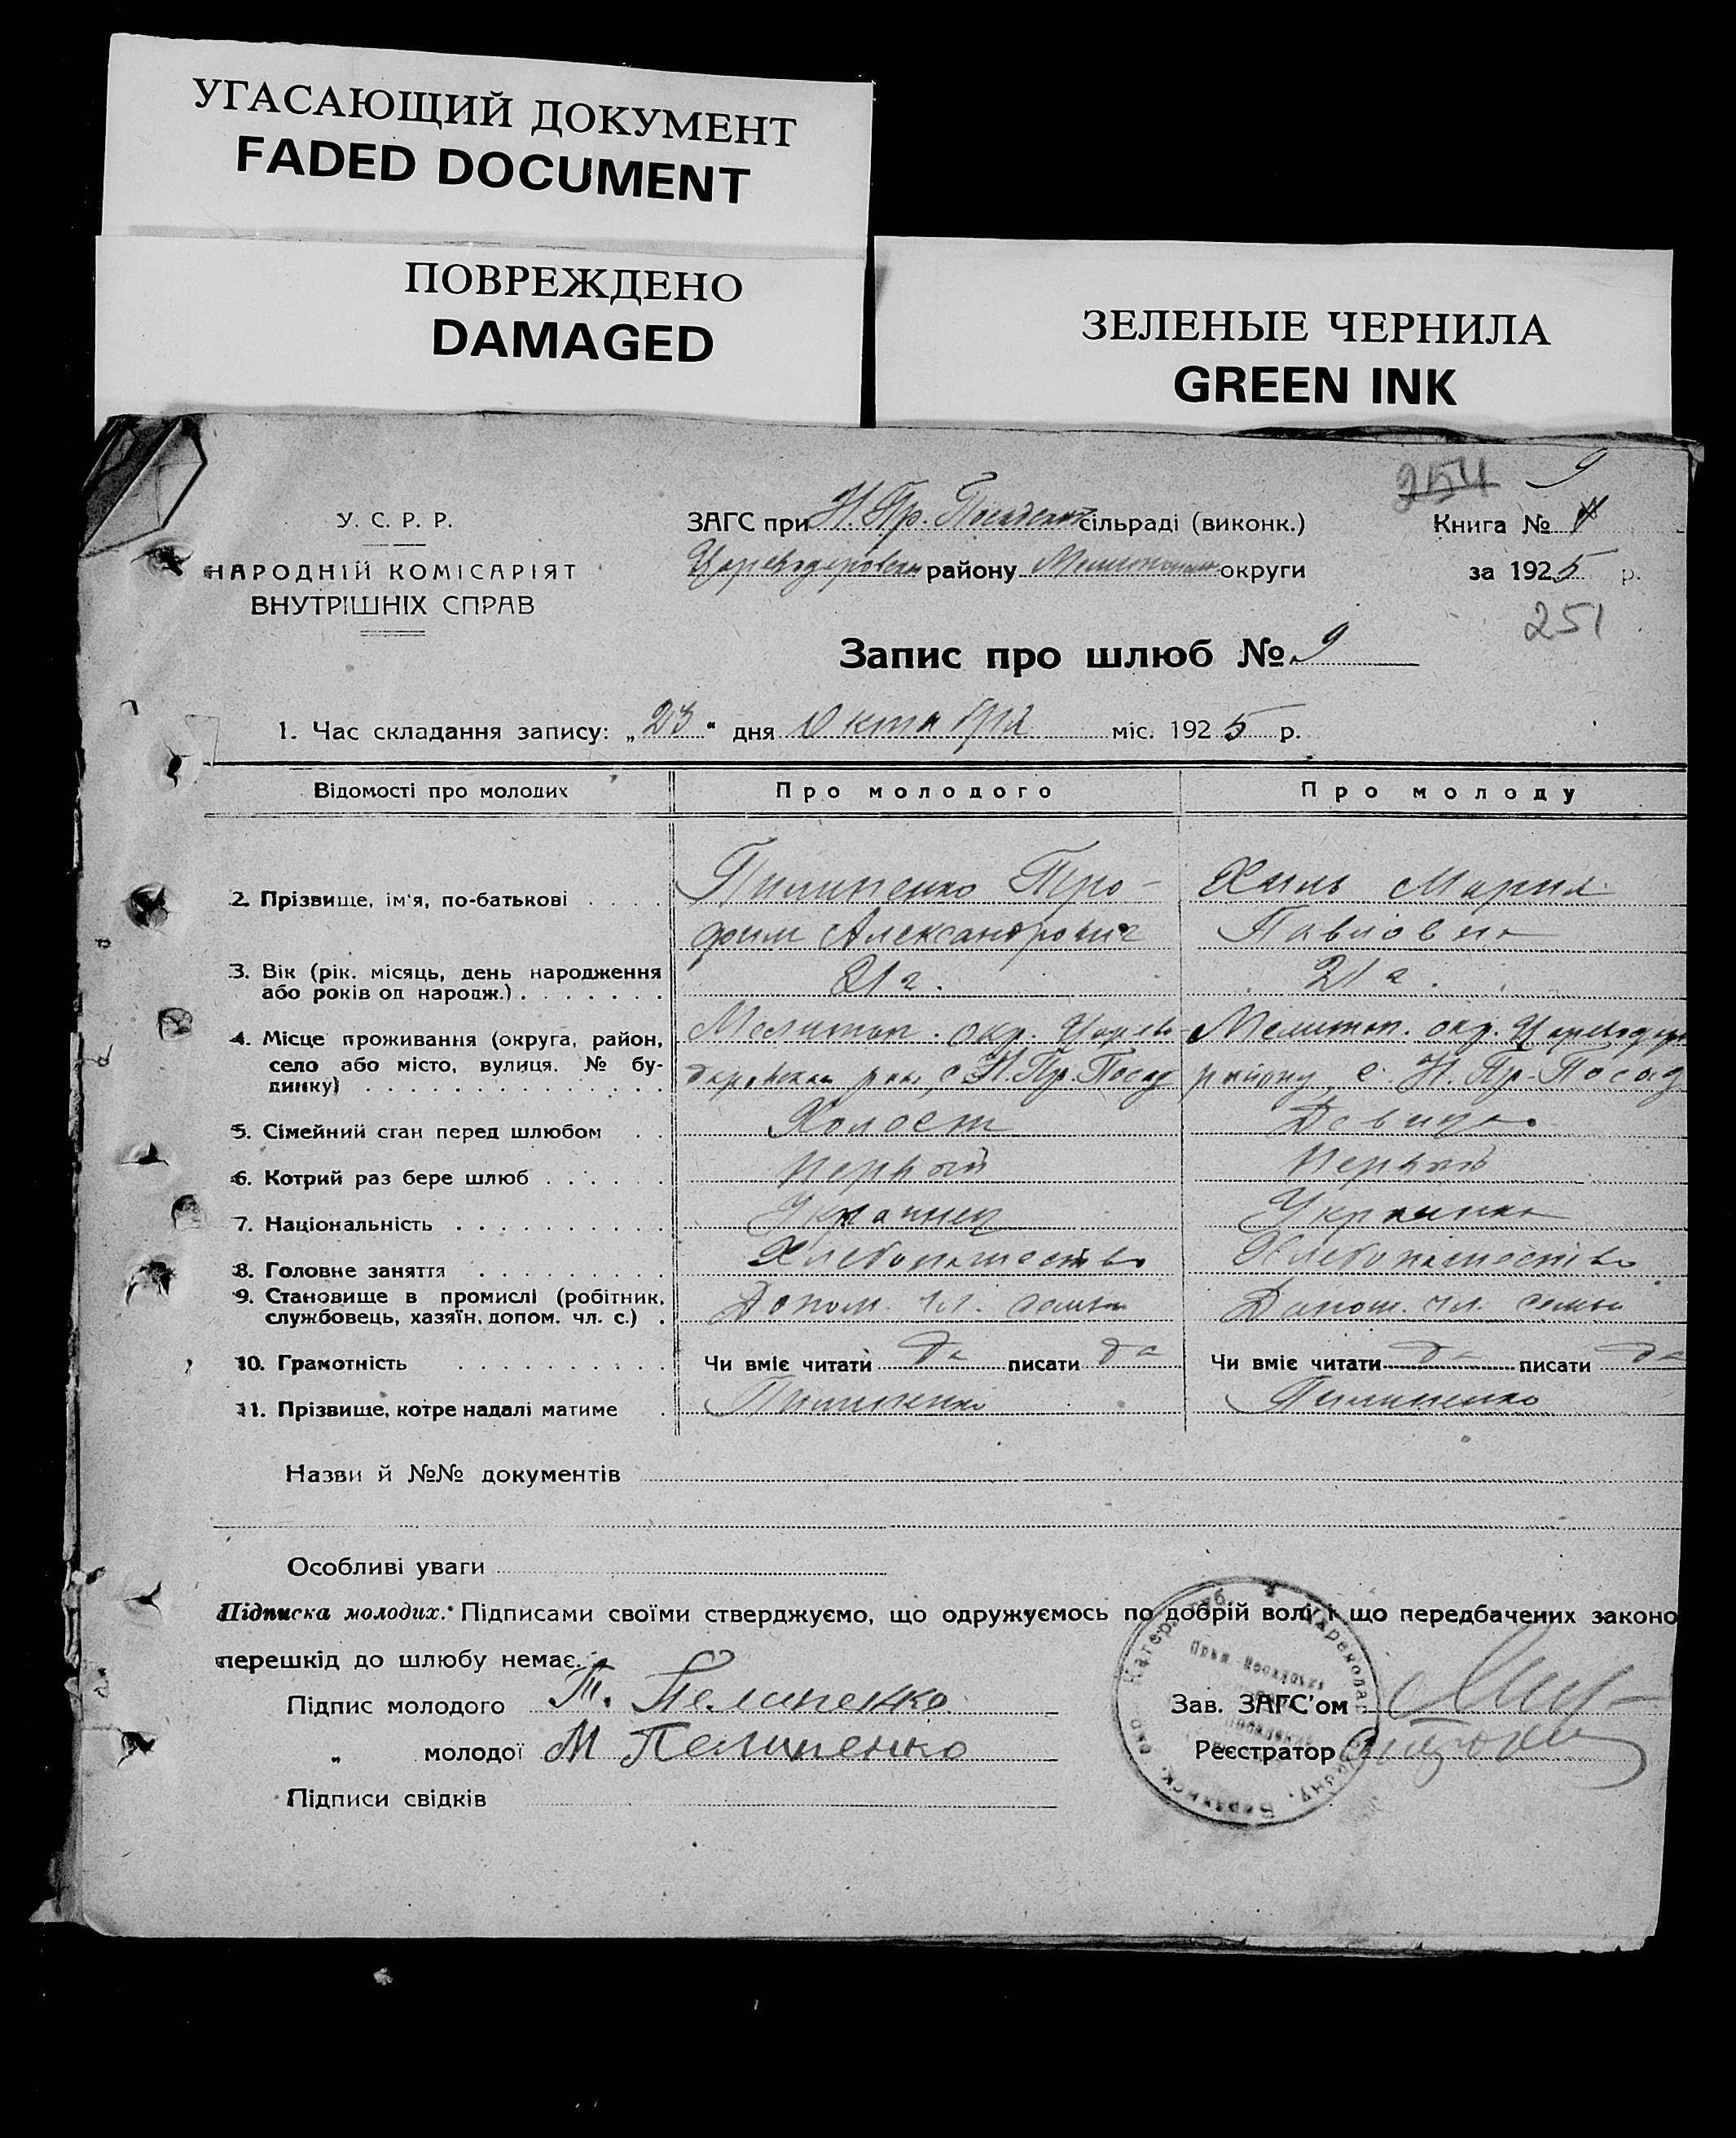 УГАСАЮЩИЙ ДОКУМЕНТ
FADED DOCUMENT
ПОВРЕЖДЕНО
DAMAGED
ЗЕЛЕНЫЕ ЧЕРНИЛА
GREEN INK
254 9
У. С. Р. Р.
НАРОДНІЙ КОМІСАРІЯТ
ВНУТРІШНІХ СПРАВ
ЗАГС при Н. Пр. сільраді (виконк.)
району округи
Книга №
за 1925 р.
251
Запис про шлюб № 9
1. Час складання запису: „23" дня Октября міс. 1925 р.
Відомості про молодих Про молодого Про молоду
2. Прізвище, ім'я, по-батькові Пилипенко Тро- Хиль Мария
фим Александрович Павловна
3. Вік (рік. місяць, день народження
або років од народж.) 21 г. 21 г.
4. Місце проживання (округа, район, Мелитоп. окр. Царево- Мелитоп. окр.
село або місто, вулиця. № бу- с. Н. Пр. Посад району, с. Н. Пр. Посад
динку)
5. Сімейний стан перед шлюбом Холост Девица
6. Котрий раз бере шлюб первый первый
7. Національність Украинец Украинка
8. Головне заняття Хлебопашество Хлебопашество
9. Становище в промислі (робітник,
службовець, хазяїн, допом. чл. с.) Допом. чл. семьи Допом. чл. семьи
10. Грамотність Чи вміє читати да писати да Чи вміє читати да писати да
11. Прізвище, котре надалі матиме Пилипенко Пилипенко
Назви й №№ документів
Особливі уваги
Підписка молодих. Підписами своїми стверджуємо, що одружуємось по добрій волі і що передбачених законо
перешкід до шлюбу немає.
Підпис молодого Т. Пелипенко
„ молодої М Пелипенко
Підписи свідків
Зав. ЗАГС'ом
Реєстратор